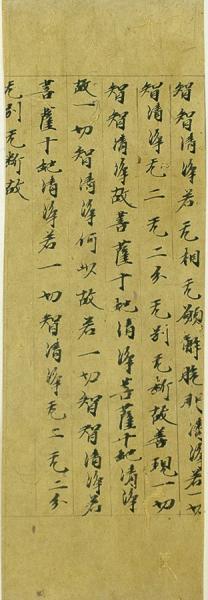 智智清淨若无相无願解脫門清淨若一切
智清淨无二无二分无別无斷故善現一切
智智清淨故菩薩十地清淨菩薩十地清淨
故一切智清淨何以故若一切智智清淨若
菩薩十地清淨若一切智清淨无二无二分
无別无斷故